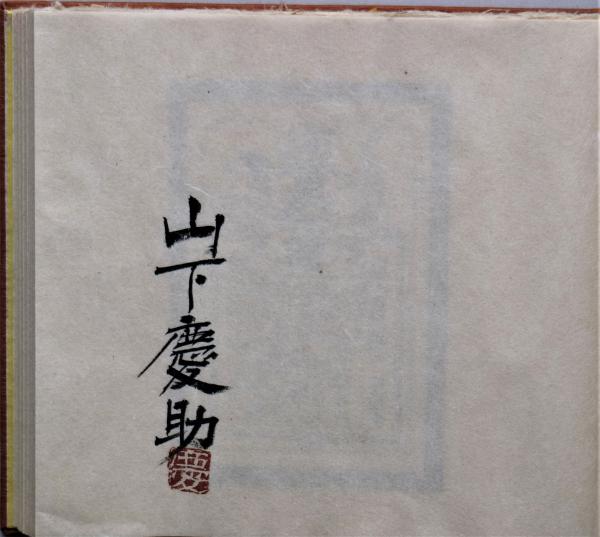 山下慶助